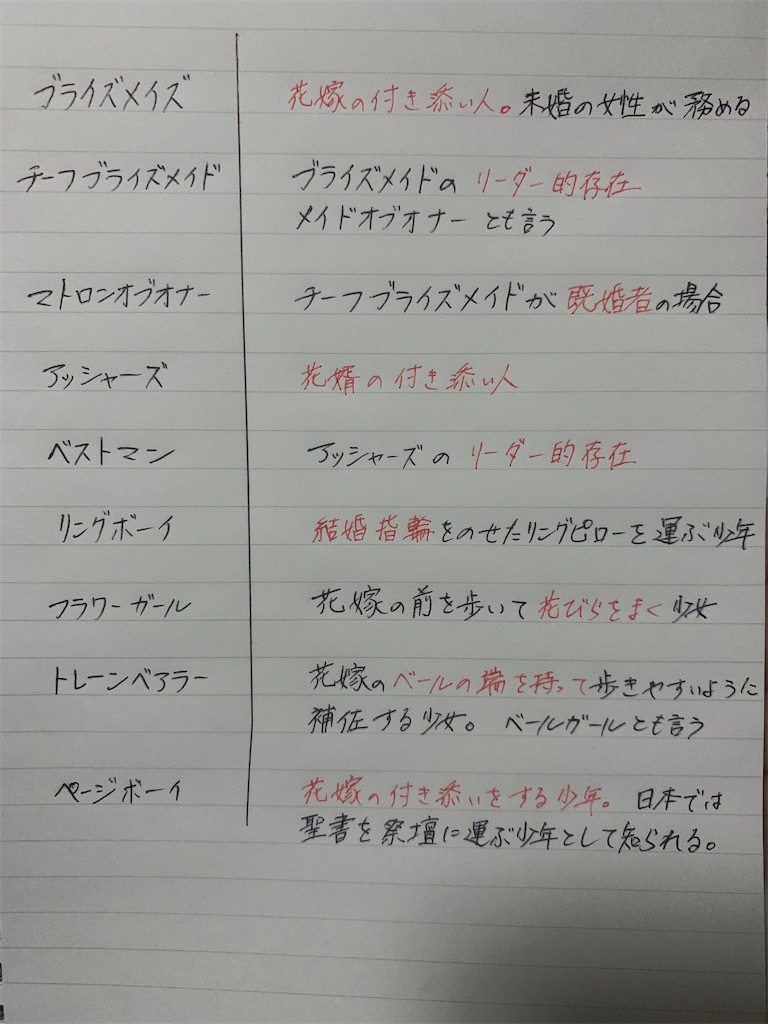 ブライズメイズ 花嫁の付き添い人。未婚の女性が務める
チーフブライズメイド ブライズメイドの リーダー的存在
メイドオブオナー とも言う
マトロンオブオナー チーフブライズメイドが既婚者の場合
アッシャーズ 花婿の付き添い人
ベストマン アッシャーズの リーダー的存在
リングボーイ 結婚指輪をのせたリングピローを運ぶ少年
フラワーガール 花嫁の前を歩いて花びらをまく少女
トレーンベアラー 花嫁のベールの端を持って歩きやすいように
補佐する少女。 ベールガールとも言う
ページボーイ 花嫁の付き添いをする少年。 日本では
聖書を祭壇に運ぶ少年として知られる。